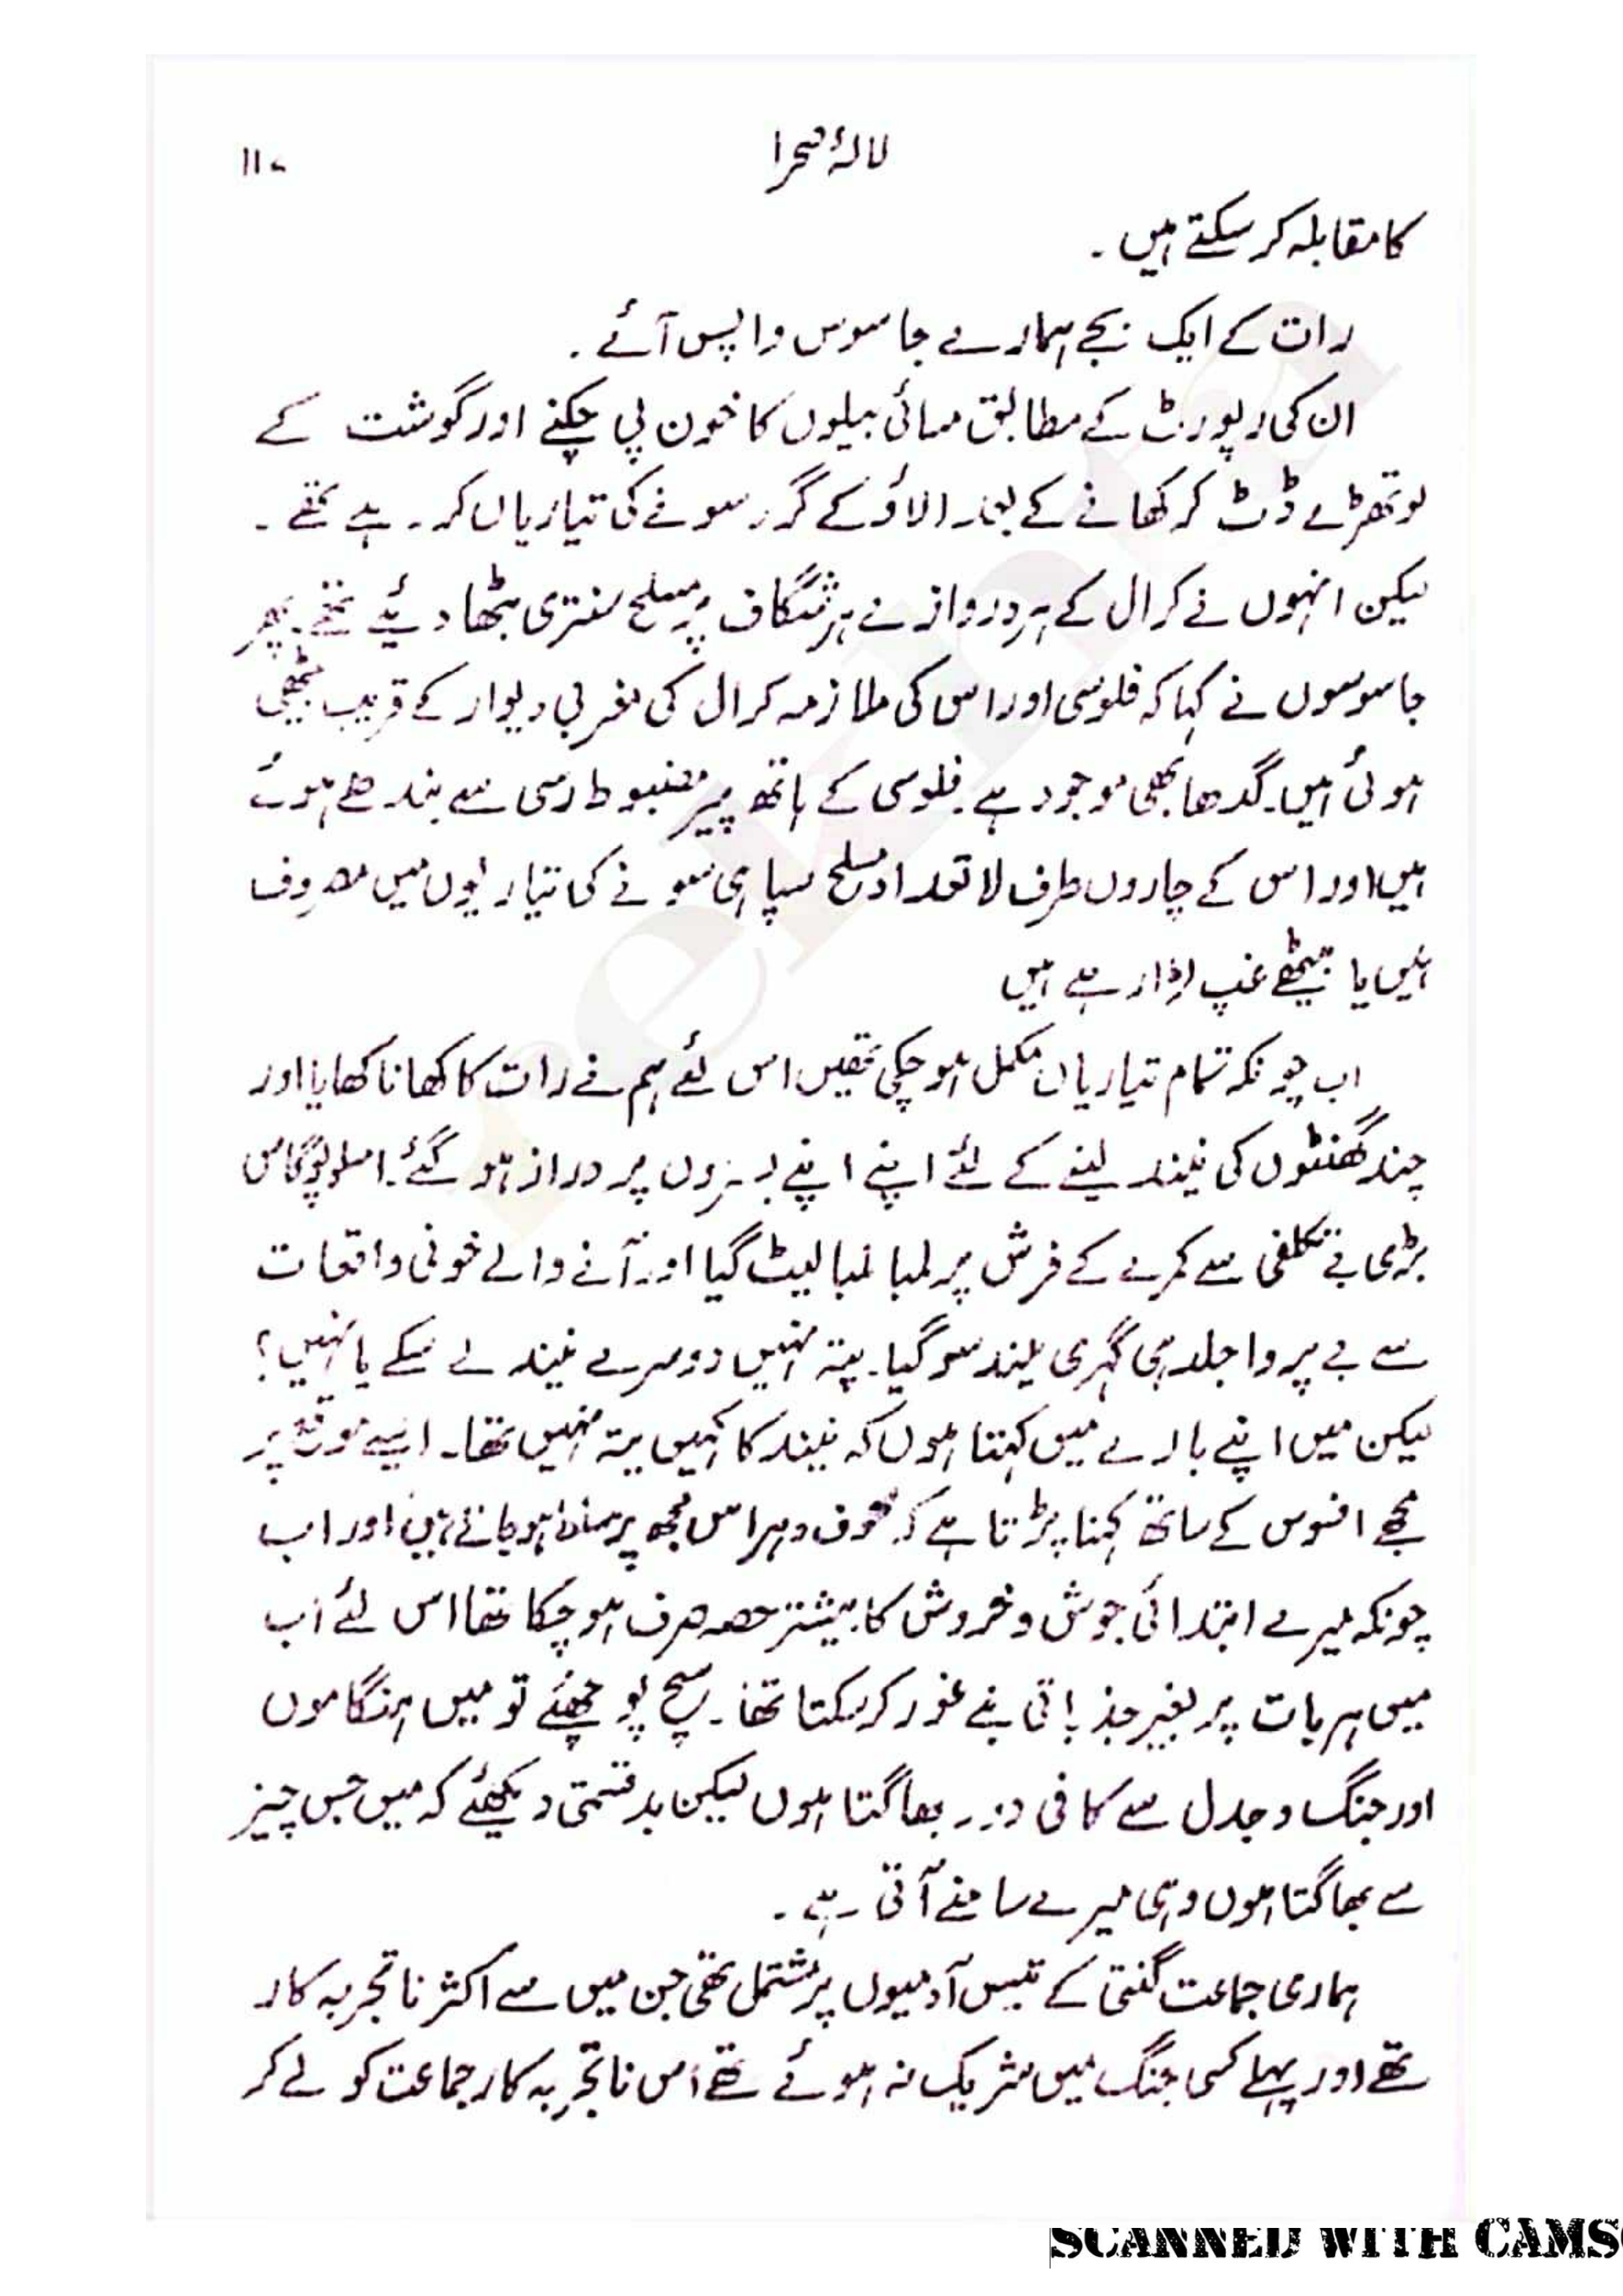 لالۂ صحرا ۱۱۷
کا مقابلہ کر سکتے ہیں ۔
رات کے ایک بجے ہمارے جاسوس واپس آئے ۔
ان کی رپورٹ کے مطابق مسائی بیلوں کا خون پی چکنے اور گوشت کے
لوتھڑے ڈٹ کر کھانے کے بعد الاؤ کے گرد سونے کی تیاریاں کر رہے تھے ۔
لیکن انہوں نے کرال کے ہر دروازے ہر شگاف پر مسلح سنتری بٹھا دیئے تھے۔ پھر
جاسوسوں نے کہا کہ فلوسی اور اس کی ملازمہ کرال کی مغربی دیوار کے قریب بیٹھی
ہوئی ہیں۔ گدھا بھی موجود ہے۔ فلوسی کے ہاتھ پیر مضبوط رسی سے بندھے ہوئے
ہیں اور اس کے چاروں طرف لا تعداد مسلح سپاہی سونے کی تیاریوں میں مصروف
ہیں یا بیٹھے غپ اڑا رہے ہیں
اب چونکہ تمام تیاریاں مکمل ہو چکی تھیں اس لئے ہم نے رات کا کھانا کھایا اور
چند گھنٹوں کی نیند لینے کے لئے اپنے اپنے بستروں پر دراز ہو گئے۔ امسلوپوگاس
بڑی بے تکلفی سے کمرے کے فرش پر لمبا لمبا لیٹ گیا اور آنے والے خونی واقعات
سے بے پروا جلد ہی گہری نیند سو گیا۔ پتہ نہیں دوسرے نیند لے سکے یا نہیں؟
لیکن میں اپنے بارے میں کہتا ہوں کہ نیند کا کہیں پتہ نہیں تھا۔ ایسے موقعہ پر
مجھے افسوس کے ساتھ کہنا پڑتا ہے کہ خوف و ہراس مجھ پر مسلط ہو جاتے ہیں اور اب
چونکہ میرے ابتدائی جوش و خروش کا بیشتر حصہ صرف ہو چکا تھا اس لئے اب
میں ہر بات پر بغیر جذباتی بنے غور کر سکتا تھا۔ سچ پوچھئے تو میں ہنگاموں
اور جنگ و جدل سے کافی دور بھاگتا ہوں لیکن بدقسمتی دیکھئے کہ میں جس چیز
سے بھاگتا ہوں وہی میرے سامنے آتی رہی ۔
ہماری جماعت گنتی کے تیس آدمیوں پر مشتمل تھی جن میں سے اکثر ناتجربہ کار
تھے اور پہلے کسی جنگ میں شریک نہ ہوئے تھے اس ناتجربہ کار جماعت کو لے کر
SCANNED WITH CAMS